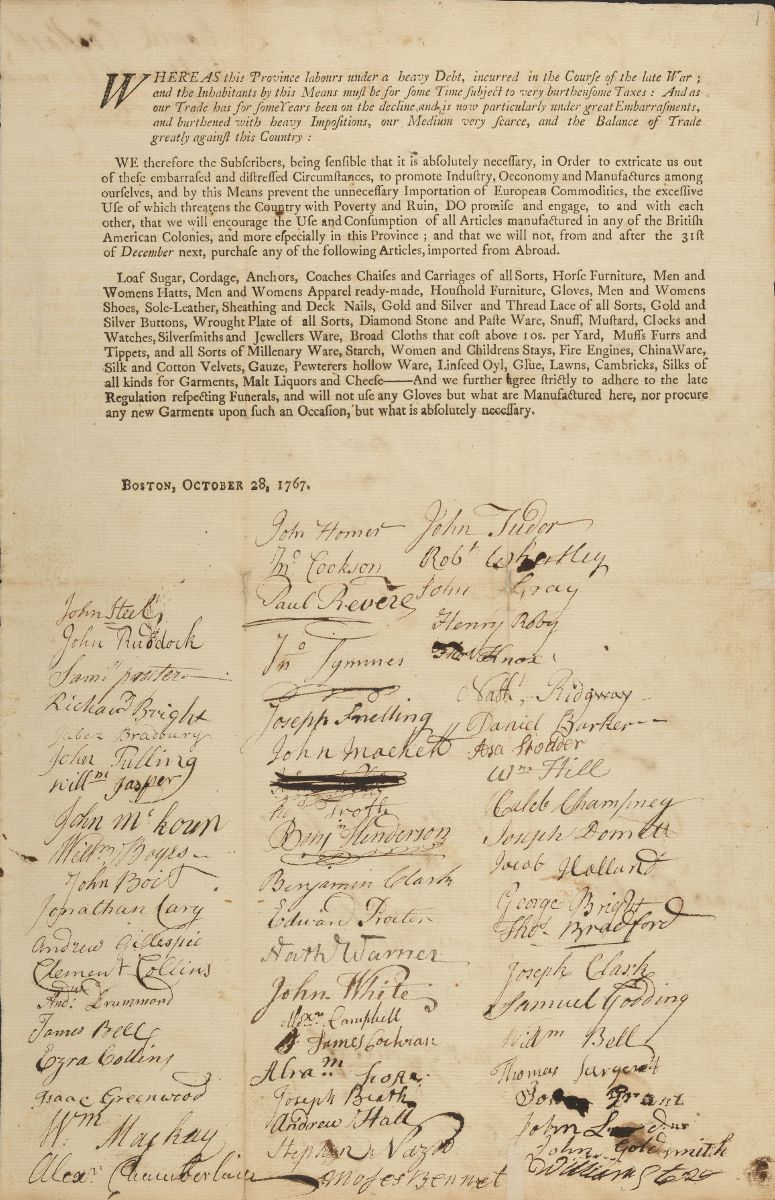 1
WHEREAS this Province labours under a heavy Debt, incurred in the Course of the late War;
and the Inhabitants by this Means muſt be for ſome Time ſubject to very burthenſome Taxes: And as
our Trade has for ſome Years been on the decline, and is now particularly under great Embarraſments,
and burthened with heavy Impoſitions, our Medium very ſcarce, and the Balance of Trade
greatly againſt this Country:
WE therefore the Subſcribers, being ſenſible that it is abſolutely neceſſary, in Order to extricate us out
of theſe embarraſed and diſtreſſed Circumſtances, to promote Induſtry, Oeconomy and Manufactures among
ourſelves, and by this Means prevent the unneceſſary Importation of European Commodities, the exceſſive
Uſe of which threatens the Country with Poverty and Ruin, DO promiſe and engage, to and with each
other, that we will encourage the Uſe and Conſumption of all Articles manufactured in any of the Britiſh
American Colonies, and more eſpecially in this Province; and that we will not, from and after the 31ſt
of December next, purchaſe any of the following Articles, imported from Abroad.
Loaf Sugar, Cordage, Anchors, Coaches Chaiſes and Carriages of all Sorts, Horſe Furniture, Men and
Womens Hatts, Men and Womens Apparel ready-made, Houſhold Furniture, Gloves, Men and Womens
Shoes, Sole-Leather, Sheathing and Deck Nails, Gold and Silver and Thread Lace of all Sorts, Gold and
Silver Buttons, Wrought Plate of all Sorts, Diamond Stone and Paſte Ware, Snuff, Muſtard, Clocks and
Watches, Silverſmiths and Jewellers Ware, Broad Cloths that coſt above 10s. per Yard, Muffs Furrs and
Tippets, and all Sorts of Millenary Ware, Starch, Women and Childrens Stays, Fire Engines, China Ware,
Silk and Cotton Velvets, Gauze, Pewterers hollow Ware, Linſeed Oyl, Glue, Lawns, Cambricks, Silks of
all kinds for Garments, Malt Liquors and Cheeſe——And we further agree ſtrictly to adhere to the late
Regulation reſpecting Funerals, and will not uſe any Gloves but what are Manufactured here, nor procure
any new Garments upon ſuch an Occaſion, but what is abſolutely neceſſary.
BOSTON, OCTOBER 28, 1767.
John Steel
John Ruddock
Richard Bright
Bradbury
John Tulling
Willm Jasper
John McKoun
Willm Boyes
John Boit
Jonathan Cary
Andrew Gillespie
Clement Collins
Andw Drummond
James Bell
Ezra Collins
Isaac Greenwood
Wm Mackay
Alexr Chamberlain
John Homer
Jno Cookson
Paul Revere
Jno Symmes
Joseph Snelling
John Mackett
Trott
Benjn Henderson
Benjamin Clark
Edward Procter
North Warner
John White
Alexr Campbell
James Cochran
Joseph
Andrew Hall
Stephen
Moses Bennet
John Tudor
Robt Whertley
John Gray
Henry Roby
Knox
Nathl Ridgway
Daniel Barker
Asa Stodder
Wm Hill
Caleb Champney
Joseph Domett
Jacob Holland
George Bright
Thos Bradford
Joseph Clark
Samuel Gooding
Willm Bell
Thomas Sargent
Grant
John
John Goldsmith
William